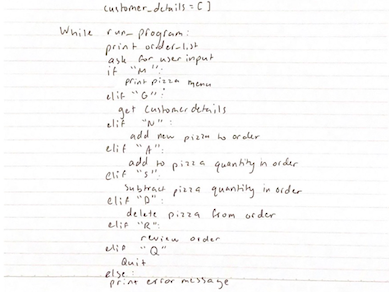 customer_details = [ ]
While run_program:
print order_list
ask for user input
if "M":
print pizza menu
elif "G":
get customer details
elif "N":
add new pizza to order
elif "A":
add to pizza quantity in order
elif "S":
subtract pizza quantity in order
elif "D":
delete pizza from order
elif "R":
review order
elif "Q"
Quit
else:
print error message